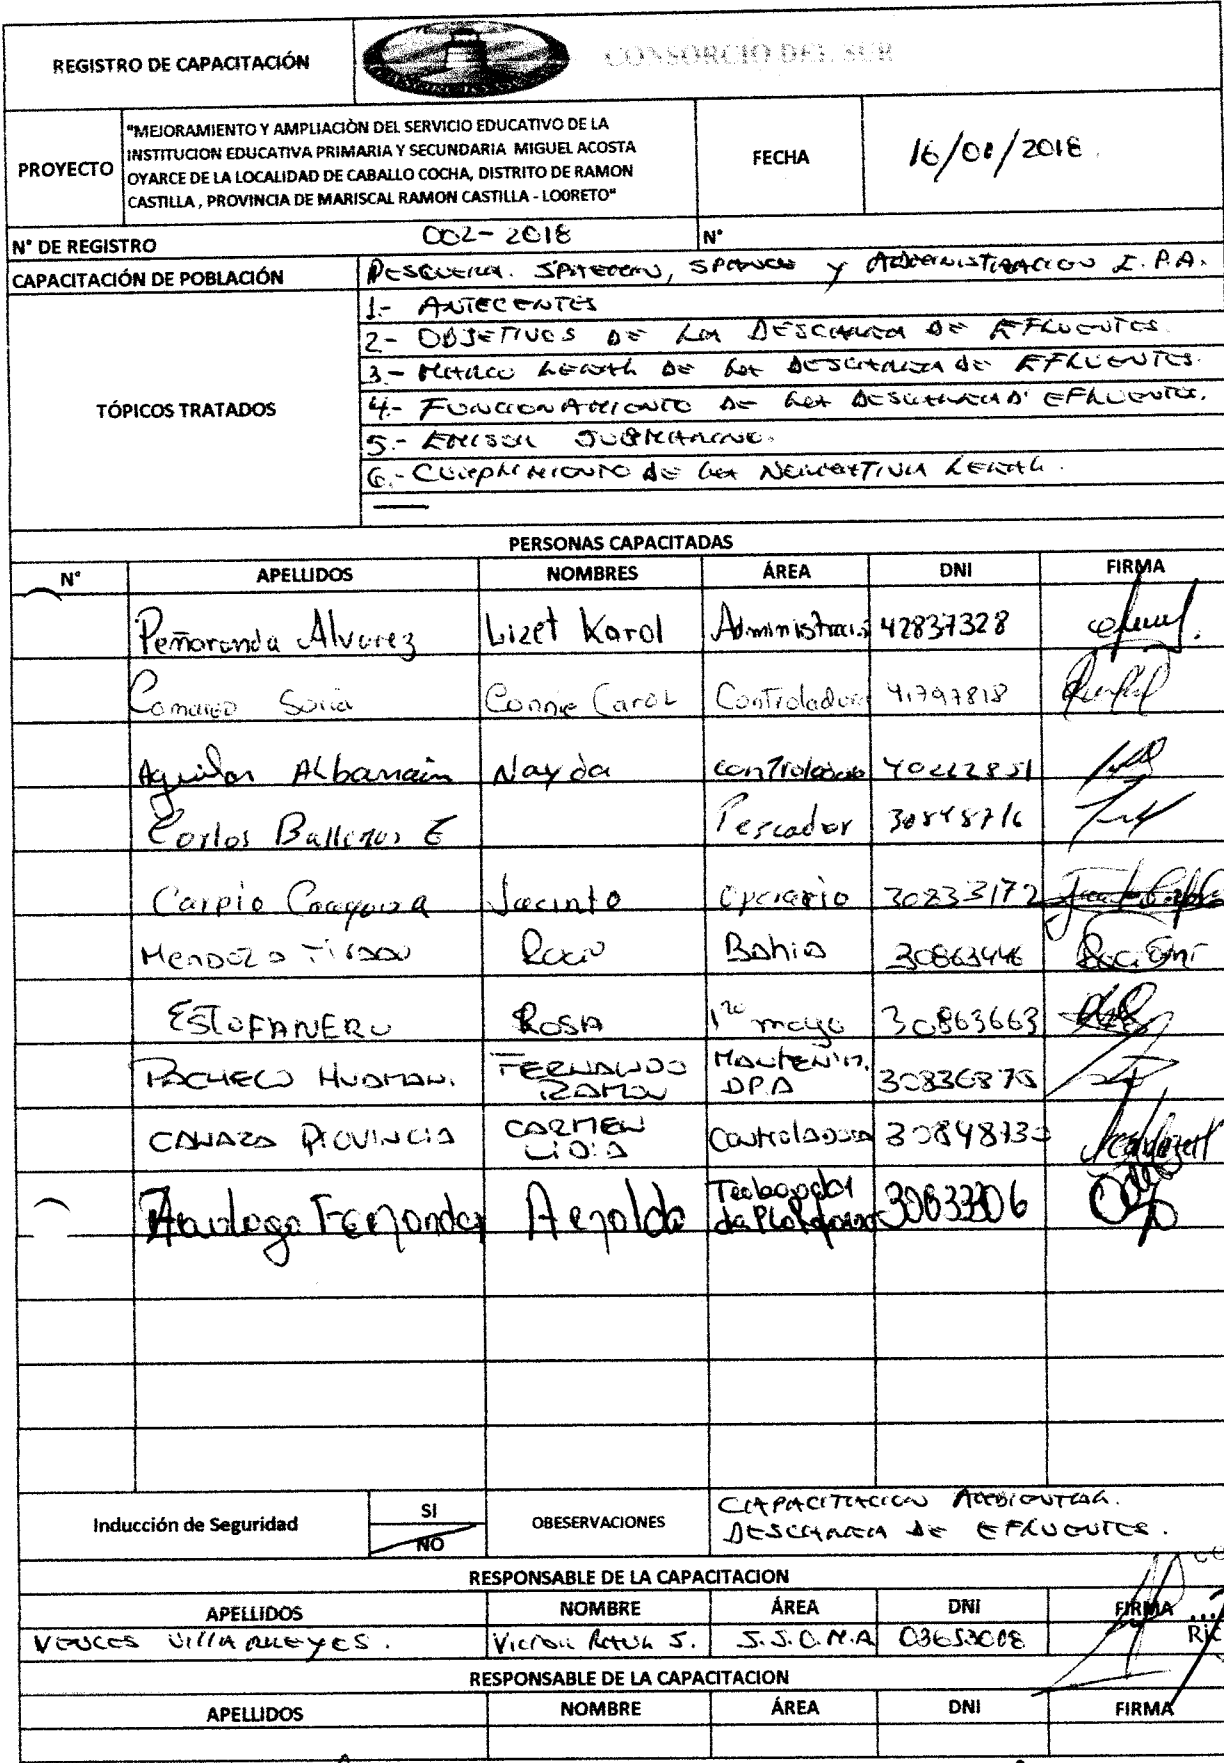 REGISTRO DE CAPACITACIÓN
CONSORCIO DEL SUR
PROYECTO
"MEJORAMIENTO Y AMPLIACIÒN DEL SERVICIO EDUCATIVO DE LA
INSTITUCION EDUCATIVA PRIMARIA Y SECUNDARIA MIGUEL ACOSTA
OYARCE DE LA LOCALIDAD DE CABALLO COCHA, DISTRITO DE RAMON
CASTILLA , PROVINCIA DE MARISCAL RAMON CASTILLA - LO0RETO"
FECHA
N° DE REGISTRO 002-2018 N°
CAPACITACIÓN DE POBLACIÓN y ADMINISTRACION I.P.A.
TÓPICOS TRATADOS
1.- ANTECENTES
2- OBJETIVOS DE LA DESCARGA DE EFLUENTES.
3.- MARCO LEGAL DE LA DESCARGA DE EFLUENTES.
4.- FUNCIONAMIENTO DE LA DESCARGA D' EFLUENTES.
5.- EMISOR SUBMARINO.
6.- CUMPLIMIENTO DE LA NORMATIVA LEGAL.
PERSONAS CAPACITADAS
N° APELLIDOS NOMBRES ÁREA DNI FIRMA
Peñaranda Alvarez Lizet Karol 42837328
Soria Connie Carol Controladora 41797818
Aguilar Albarracin Nayda controladora
Carlos E Pescador
Carpio Jacinto Operario 30833172
Mendoza Tisado Rocio Bahia 30863446
ESTOFANERO ROSA 1ro mayo 30863663
PACHECO HUAMAN. FERNANDO RAMON MANTENIM. DPA
PROVINCIA CARMEN LIDIA CONTROLADORA
Arnoldo
Inducción de Seguridad SI
NO
OBESERVACIONES
CAPACITACION AMBIENTAL.
DESCARGA DE EFLUENTES.
RESPONSABLE DE LA CAPACITACION
APELLIDOS NOMBRE ÁREA DNI FIRMA
VENCES VILLARREYES. VICTOR RAUL S. S.S.O.M.A 03653008
RESPONSABLE DE LA CAPACITACION
APELLIDOS NOMBRE ÁREA DNI FIRMA